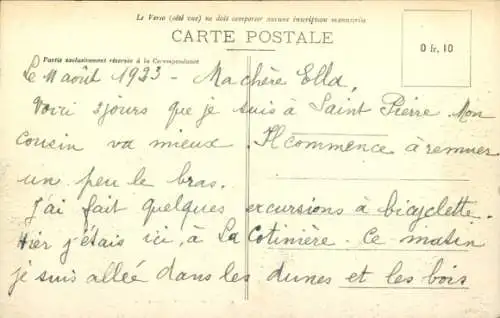 Le Verso (côté vue) ne doit comporter aucune inscription manuscrite
CARTE POSTALE
0 fr. 10
Partie exclusivement réservée à la Correspondance
Le 11 août 1923 - Ma chère Ella,
Voici 2 jours que je suis à Saint Pierre. Mon
cousin va mieux. Il commence à remuer
un peu le bras.
J'ai fait quelques excursions à bicyclette.
Hier j'étais ici, à La Cotinière. Ce matin
je suis allée dans les dunes et les bois